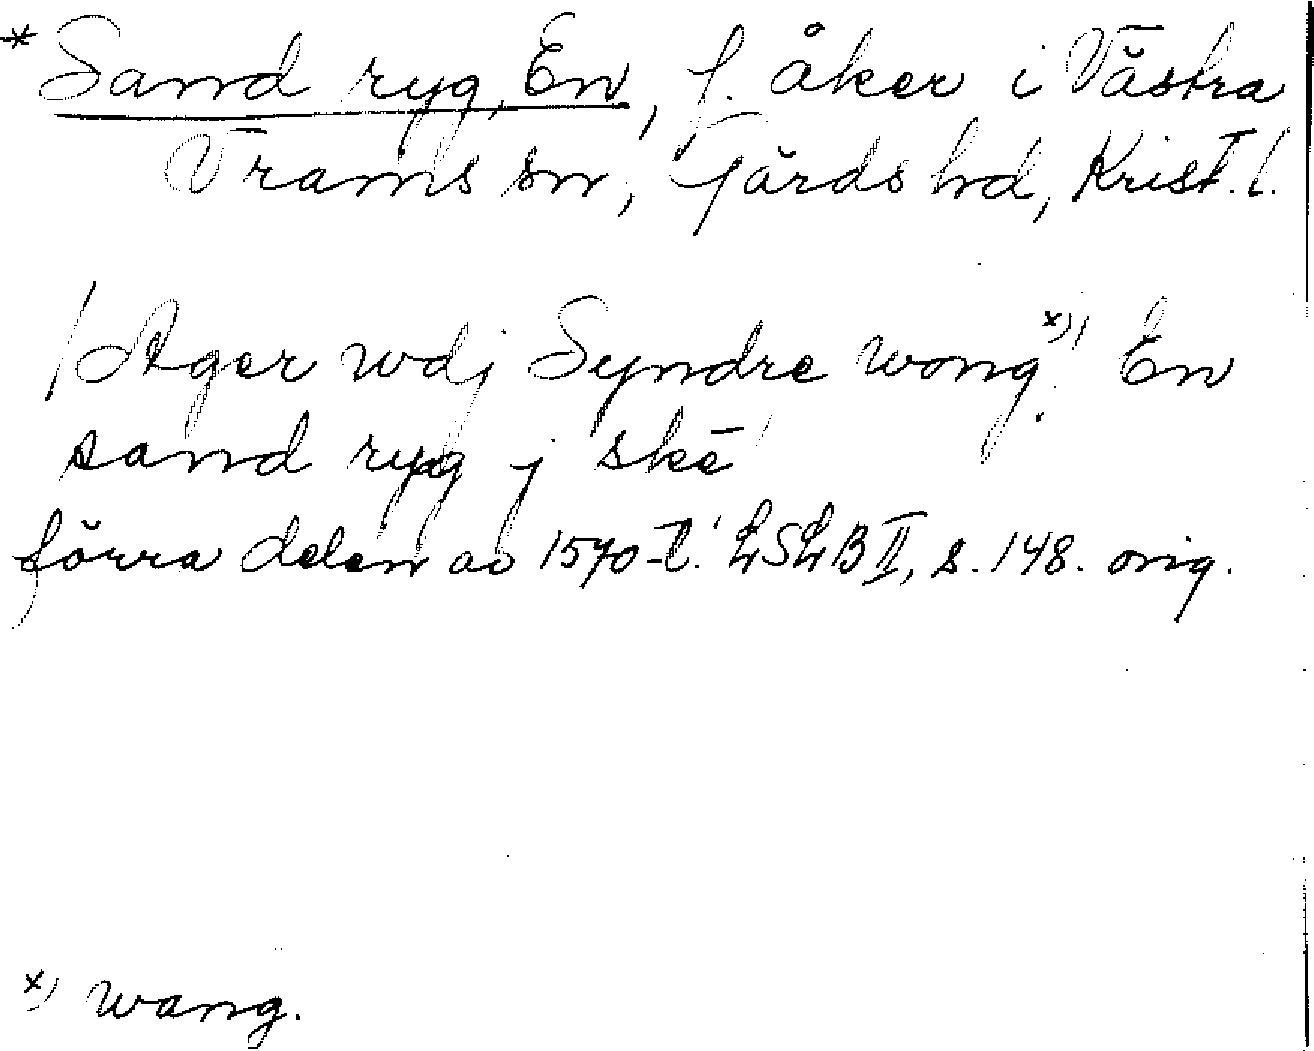 * Sand ryg, En, f. åker i Västra
Vrams sn, Gärds hd, Krist. l.
/Ager wdj Syndre wong.x)/ En
sand ryg j skē/
förra delen av 1570-t. LSLB II, s. 148. orig.
x) wang.